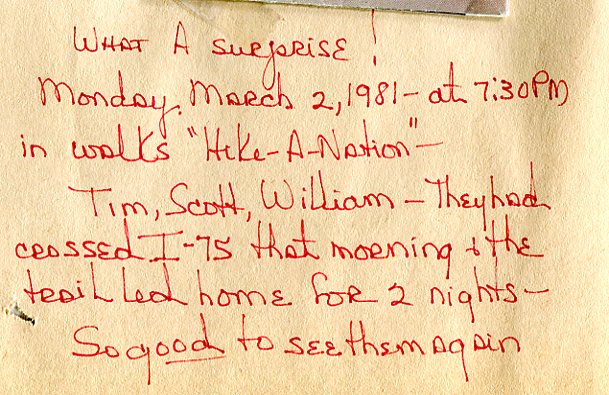 WHAT A SURPRISE!
Monday, March 2, 1981 - at 7:30PM
in walks "Hike-A-Nation" -
Tim, Scott, William - They had
crossed I-75 that morning & the
trail led home for 2 nights -
So good to see them again